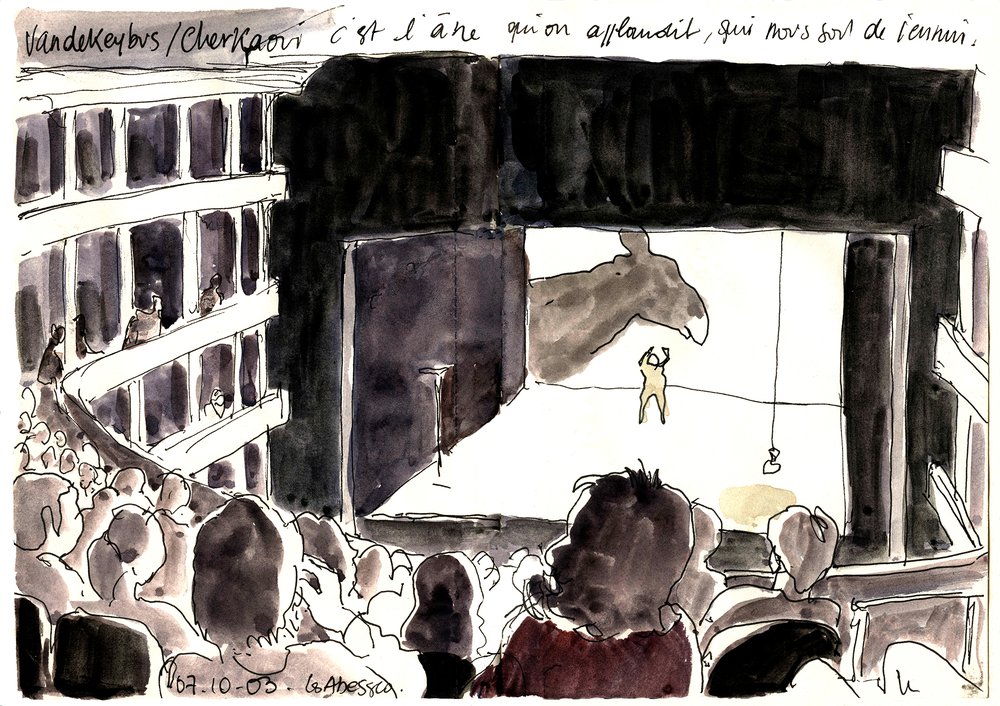 Vandekeybus / Cherkaoui c'est l'âne qu'on applaudit, qui nous sort de l'ennui.
07.10-03. Les Abesses.